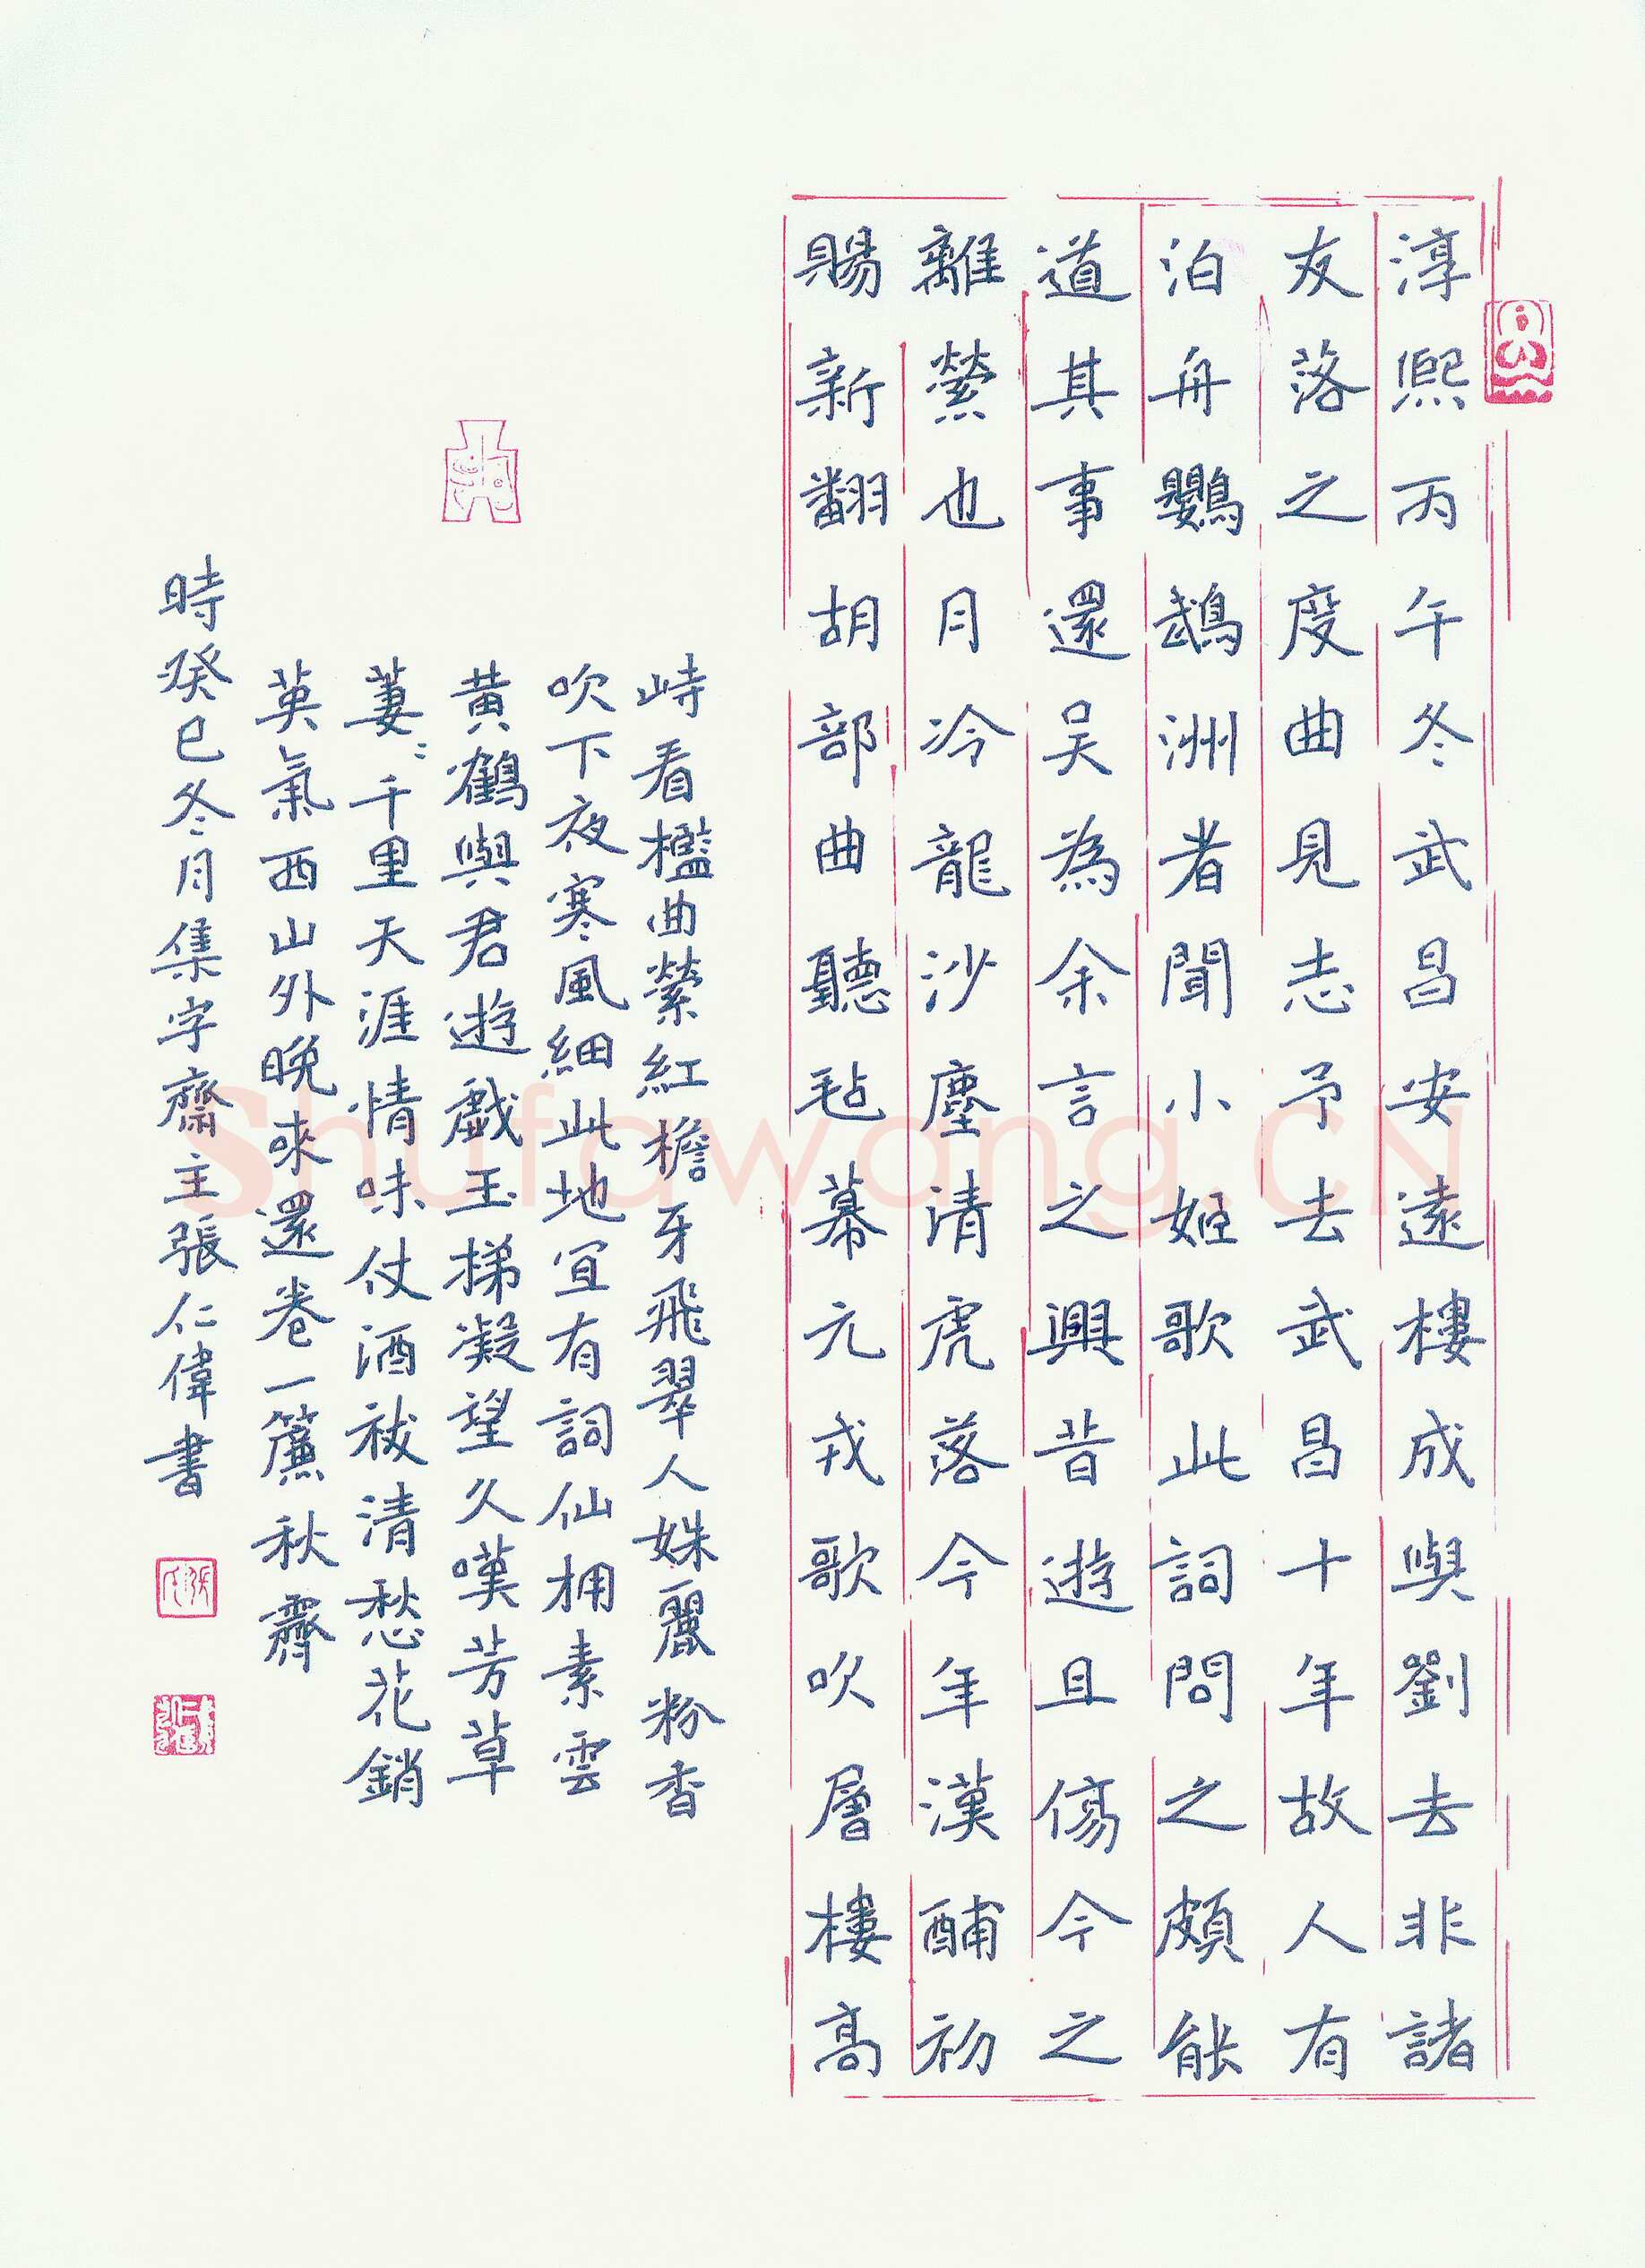 淳熙丙午冬武昌安遠樓成與劉去非諸
友落之度曲見志予去武昌十年故人有
泊舟鸚鵡洲者聞小姬歌此詞問之頗能
道其事還吴為余言之興昔遊且傷今之
離縈也月冷龍沙塵清虎落今年漢酺初
賜新翻胡部曲聽毡幕元戎歌吹層樓高
峙看檻曲縈紅檐牙飛翠人姝麗粉香
吹下夜寒風細此地宜有詞仙拥素雲
黄鶴與君遊戲玉梯凝望久嘆芳草
萋〻千里天涯情味仗酒祓清愁花銷
英氣西山外晚來還卷一簾秋霽
時癸巳冬月集字齋主張仁偉書
Shufawang.CN